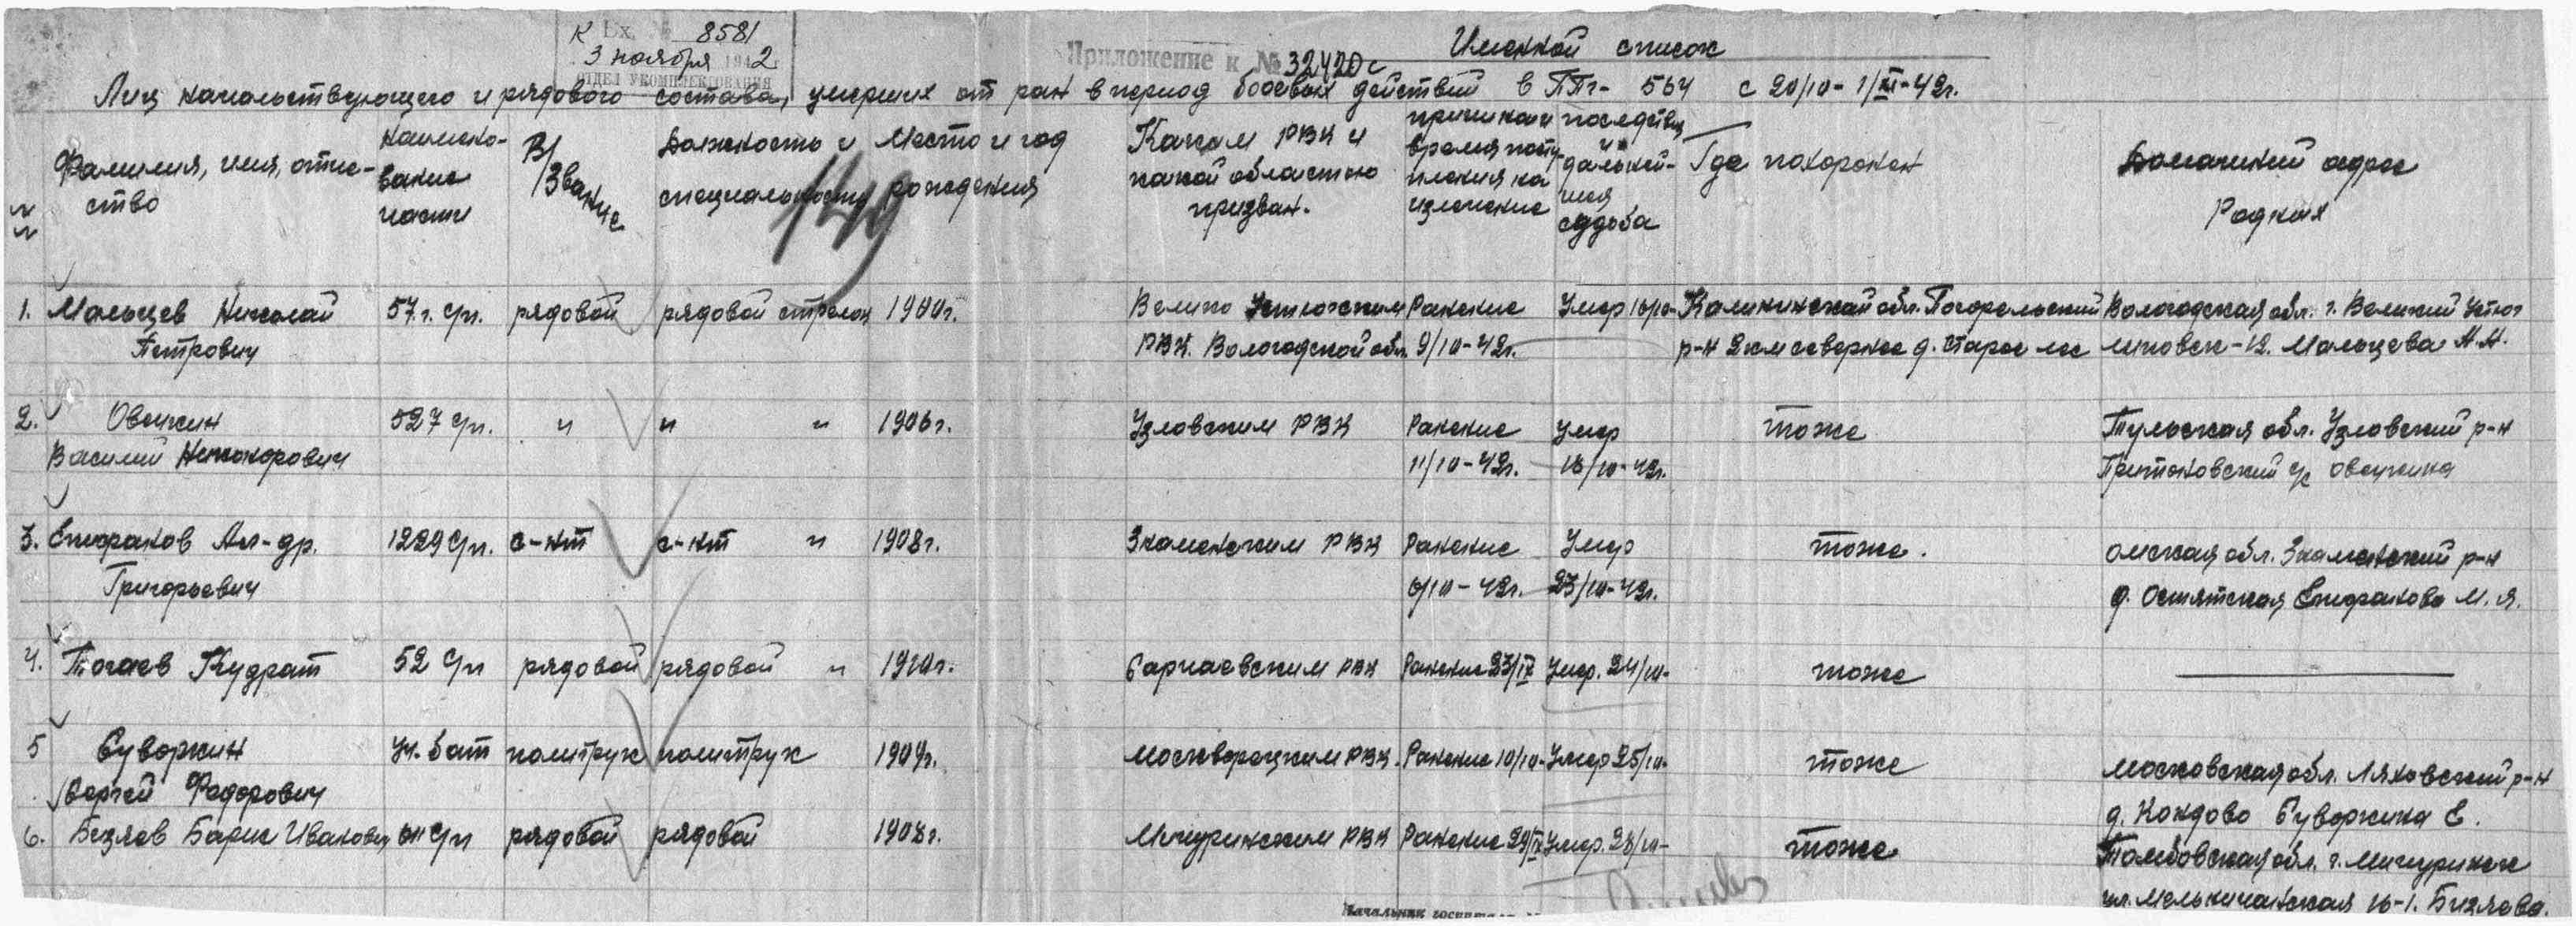 К Вх. № 8581
3 ноября 1942
ОТДЕЛ УКОМПЛЕКТОВАНИЯ
Приложение к № 32420с
Именной список
Лиц начальствующего и рядового состава, умерших от ран в период боевых действий в ППг- 564 с 20/10- 1/XI-42г.
Фамилия, имя, отче-
ство
наимено-
вание
части
В/
Звание
Должность и
специальность
Место и год
рождения
149
Каким РВК и
какой областью
призван.
причина и
время посту-
пления на
излечение
последств.
и
дальней-
шая
судьба
Где похоронен
Домашний адрес
Родных
1. Мальцев Николай
Петрович
57 г. с/п. рядовой рядовой стрелок 1900г.
Велико Устюгским
РВК. Вологодской обл.
Ранение
9/10-42г.
Умер 16/10-
Калининской обл. Погорельский
р-н 2 км севернее д. Старое
Вологодская обл. г. Великий Устюг
12. Мальцева А.А.
2. Овечкин
Василий Никонорович
527 с/п. " " " 1906г.
Узловским РВК
Ранение
11/10-42г.
умер
18/10-42г.
тоже
Тульская обл. Узловский р-н
с/с Овечкина
3. Епифанов Ал-др.
Григорьевич
1229 с/п. с-нт с-нт " 1908г.
Знаменским РВК
Ранение
6/10-42г.
Умер
23/10-42г.
тоже.
Омская обл. Знаменский р-н
д. М. Я.
4. Тогаев Кудрат
52 с/п рядовой рядовой " 1910г.
РВК
Ранение 23/IX
Умер. 24/10-
тоже
5 Суворкин
Сергей Федорович
Уч. бат политрук политрук 1904г.
Москворецким РВК.
Ранение 10/10-
Умер 25/10-
тоже
Московская обл. р-н
д. Кондово Суворкина Е.
6. Безяев Борис Иванович с/п рядовой рядовой 1908г.
Мичуринским РВК
Ранение 29/IX
Умер. 28/10-
тоже
Тамбовская обл. г. Мичуринск
16-1.
Начальник